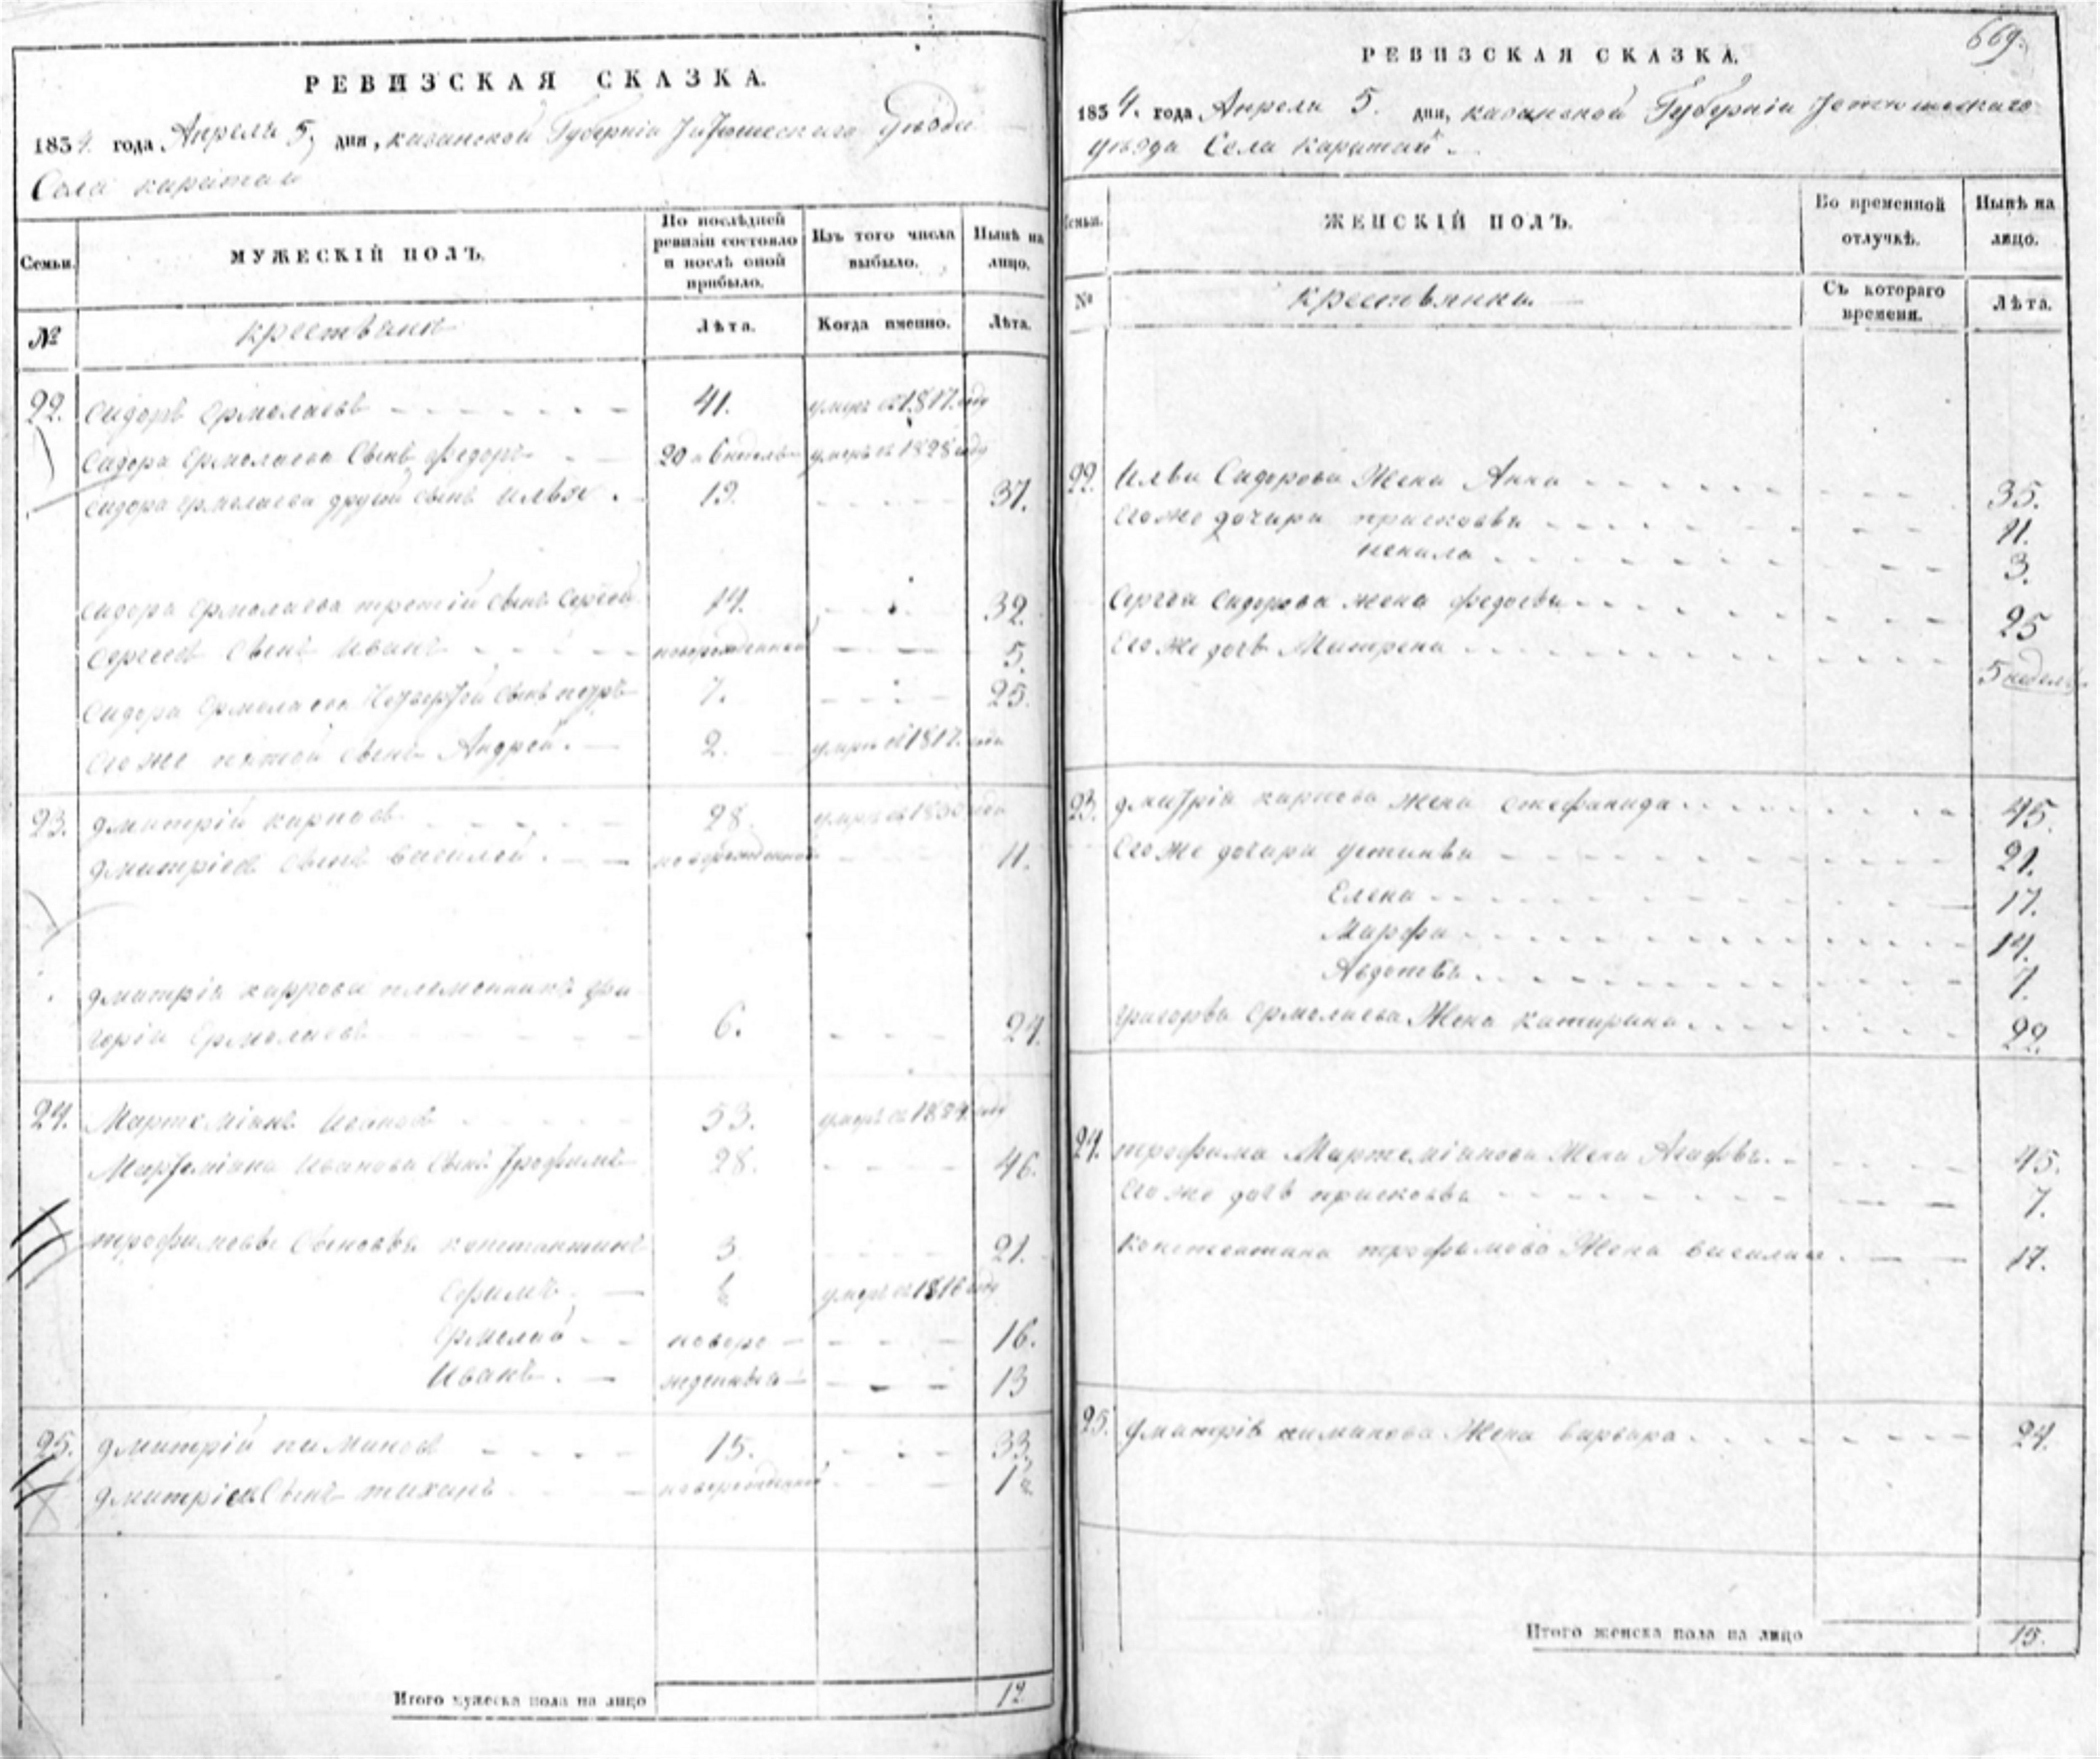 РЕВИЗСКАЯ СКАЗКА.
1834. года Апреля 5, дня, казанской Губерніи Уѣзда
Села каратаи
Семьи.
МУЖЕСКІЙ ПОЛЪ.
По послѣдней ревизіи состояло и послѣ оной прибыло.
Изъ того числа выбыло.
Нынѣ на лицо.
№
крестьяне
Лѣта.
Когда именно.
Лѣта.
22. Сидоръ Ермолаевъ 41. умеръ въ 1817. году
Сидора Ермолаева Сынъ Федоръ 20 и 6 недель умеръ въ 1828 году
Сидора Ермолаева другой сынъ Илья. 19. 37.
Сидора Ермолаева третій сынъ Сергей 14. 32.
Сергеевъ Сынъ Иванъ новорожденной 5.
Сидора Ермолаева Четвертой Сынъ петръ 7. 25.
Его же пятой сынъ Андрей. 2. умеръ въ 1817. году
23. Дмитрій карповъ 28. умеръ въ году
Дмитріевъ Сынъ василей. новорожденной 11.
Дмитрія карпова племянникъ гри
горій Ермолаевъ 6. 24.
24. Мартеміянъ Ивановъ 53. умеръ въ году
Мартеміяна Иванова Сынъ Трофимъ 28. 46.
трофимовы Сыновья константинъ 3 21.
Ефимъ. умеръ въ 1816 году
Ермолай новоро 16.
Иванъ. жденныя 13
25. Дмитрій пимановъ 15. 33.
Дмитріевъ Сынъ тихонъ новорожденной
Итого мужеска пола на лицо 12.
669.
РЕВИЗСКАЯ СКАЗКА.
1834. года Апреля 5. дня, казанской Губерніи Тетюшскаго
уѣзда Села Каратаи.
Семьи.
ЖЕНСКІЙ ПОЛЪ.
Во временной отлучкѣ.
Нынѣ на лицо.
№
Крестьянки
Съ котораго времени.
Лѣта.
22. Ильи Сидорова Жена Анна 35.
Его же дочери прасковья 11.
ненила 3.
Сергея Сидорова жена федосья 25
Его же дочь Матрена 5 недель
23. Дмитрія карпова жена Стефанида 45.
Его же дочери устинья 21.
Елена 17.
Марфа 14.
Авдотья 7.
григорья Ермолаева Жена катирина 22.
24. трофима Мартеміянова Жена Агафья. 45.
Его же дочь прасковья 7.
Константина трофимова Жена василиса. 17.
25. Дмитрія пиманова Жена варвара 24.
Итого женска пола на лицо 15.